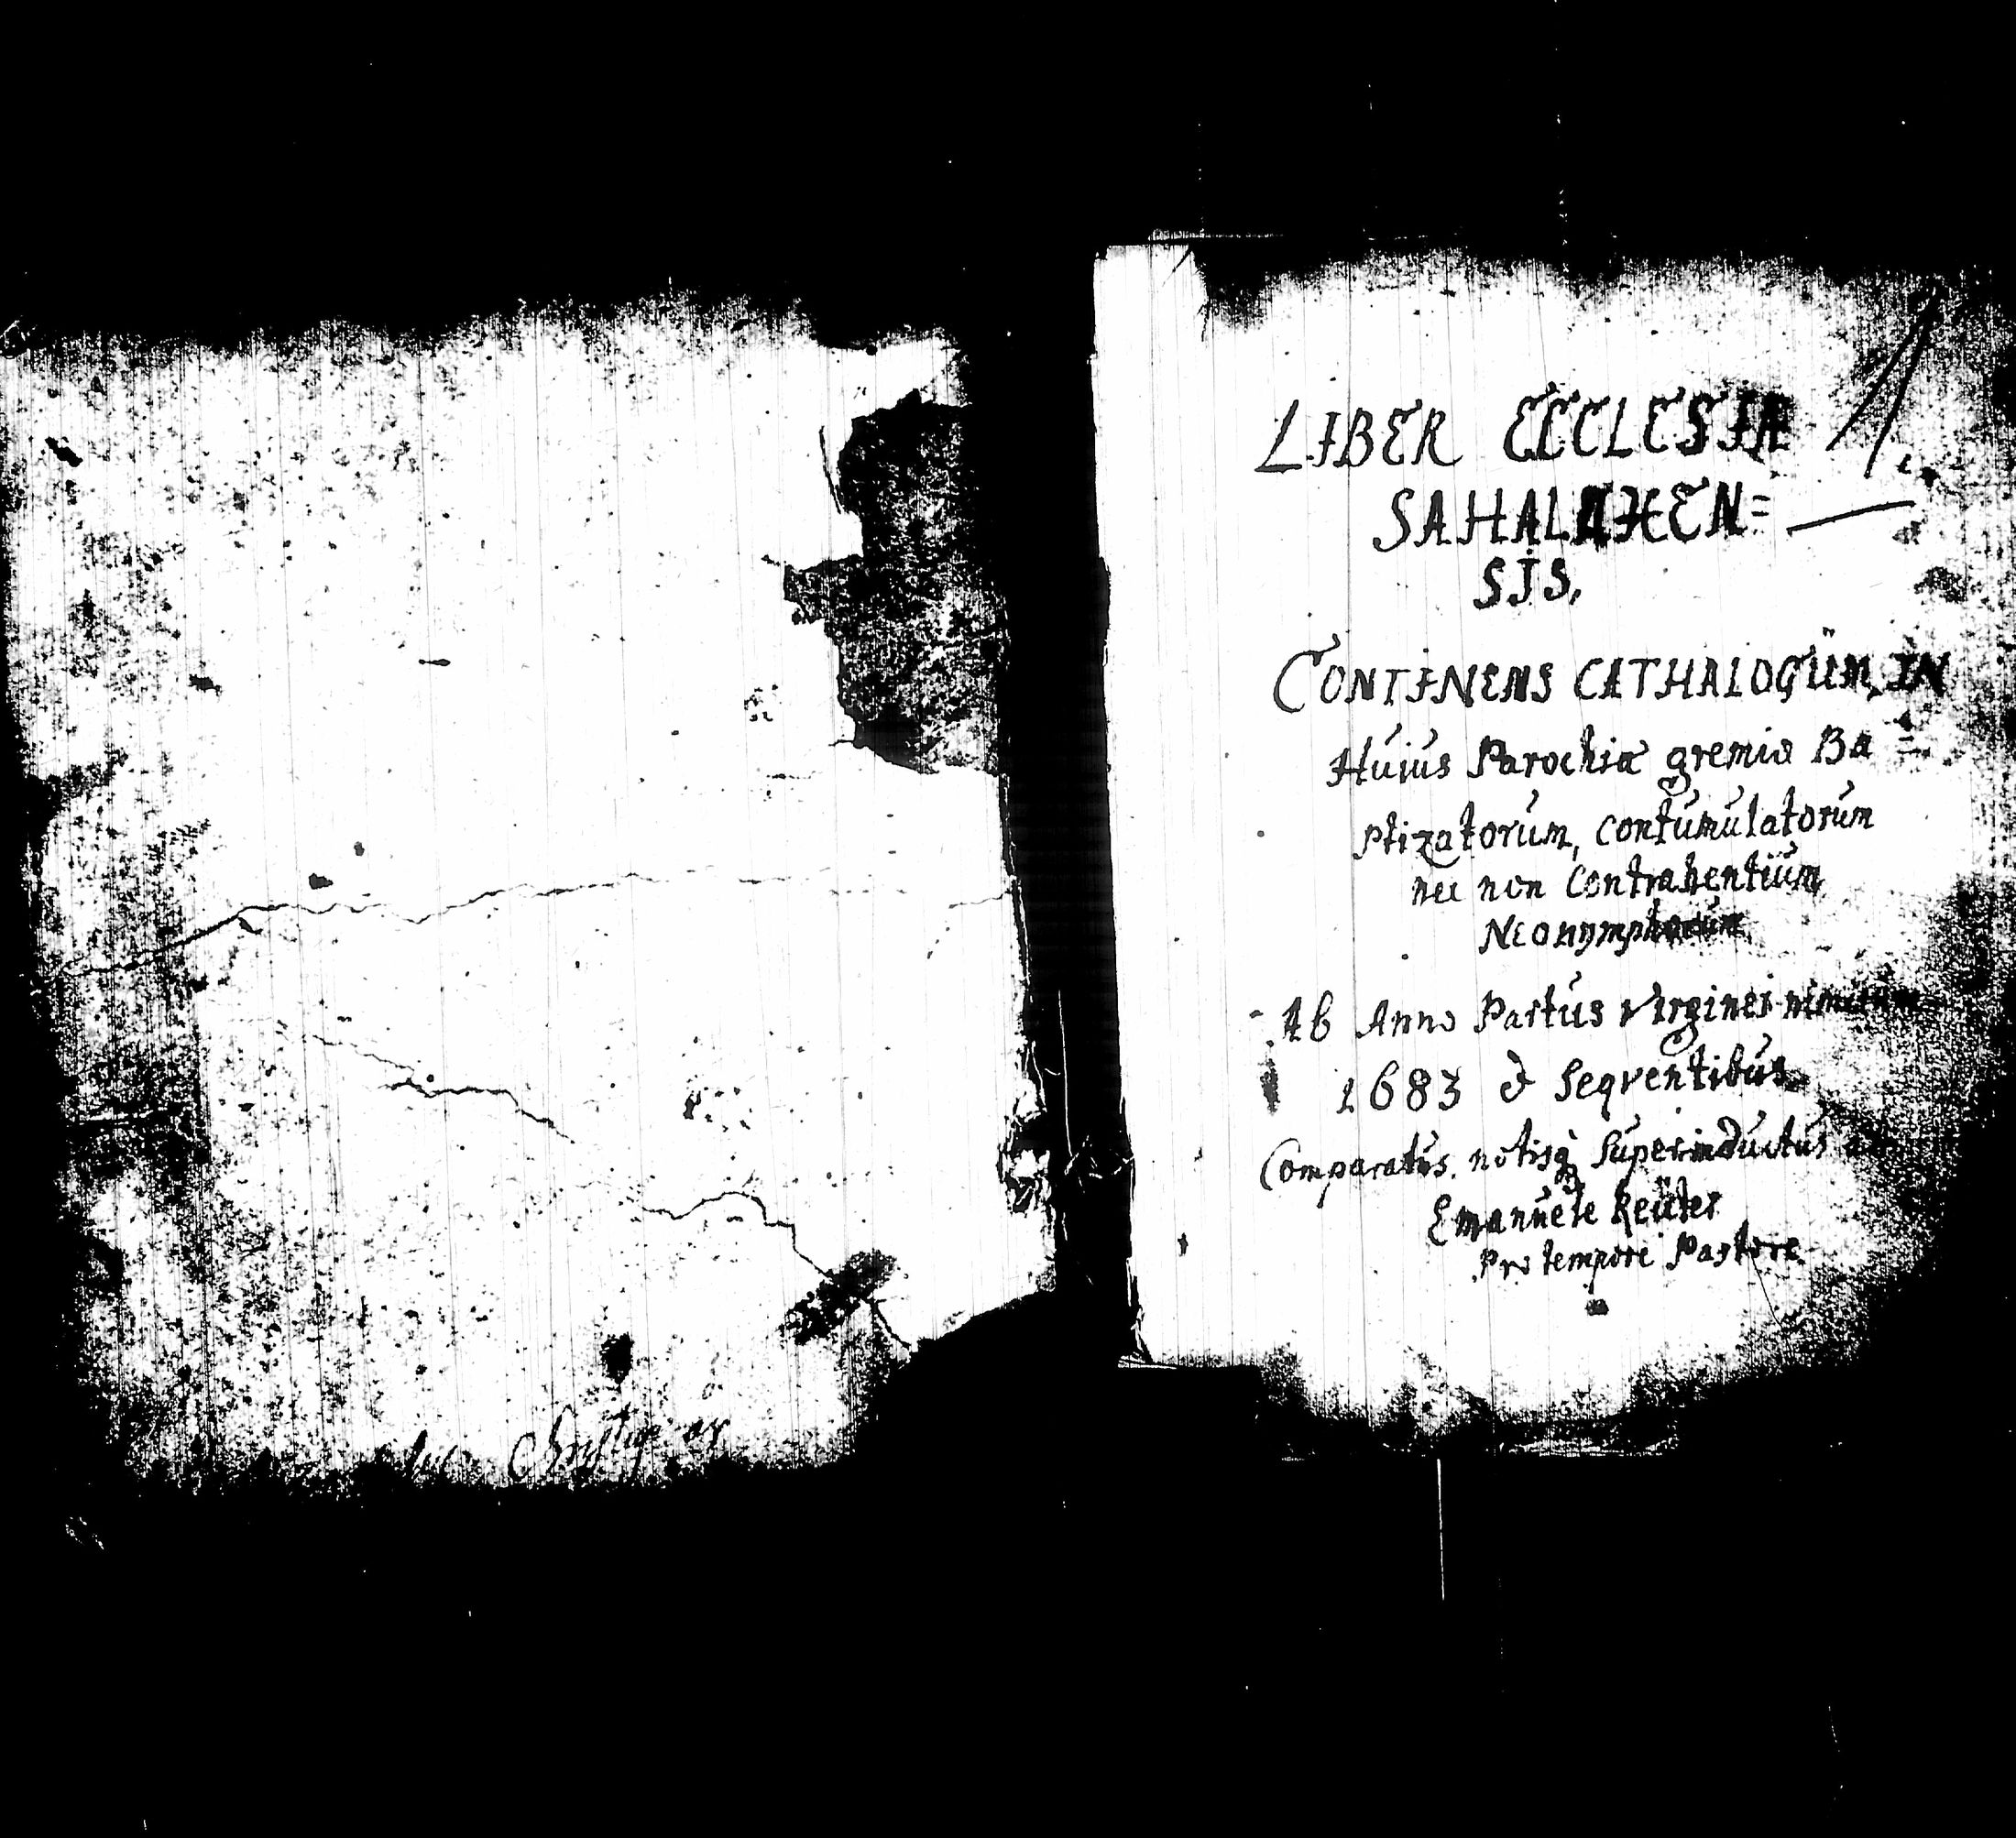 LIBER ECCLESIÆ
SAHALAHEN=
SIS,
CONTINENS CATHALOGŪM, IN
Hújús Parochiæ gremio Ba=
ptizatorúm, contúmúlatorúm
nec non Contrahentiúm
Neonymphorúm
Ab Anno Partús Virginei nimirúm
1683 & seqventibús
Comparatús. notisq; súperindúctús
Emanúele Reúter
Pro tempore Pastore